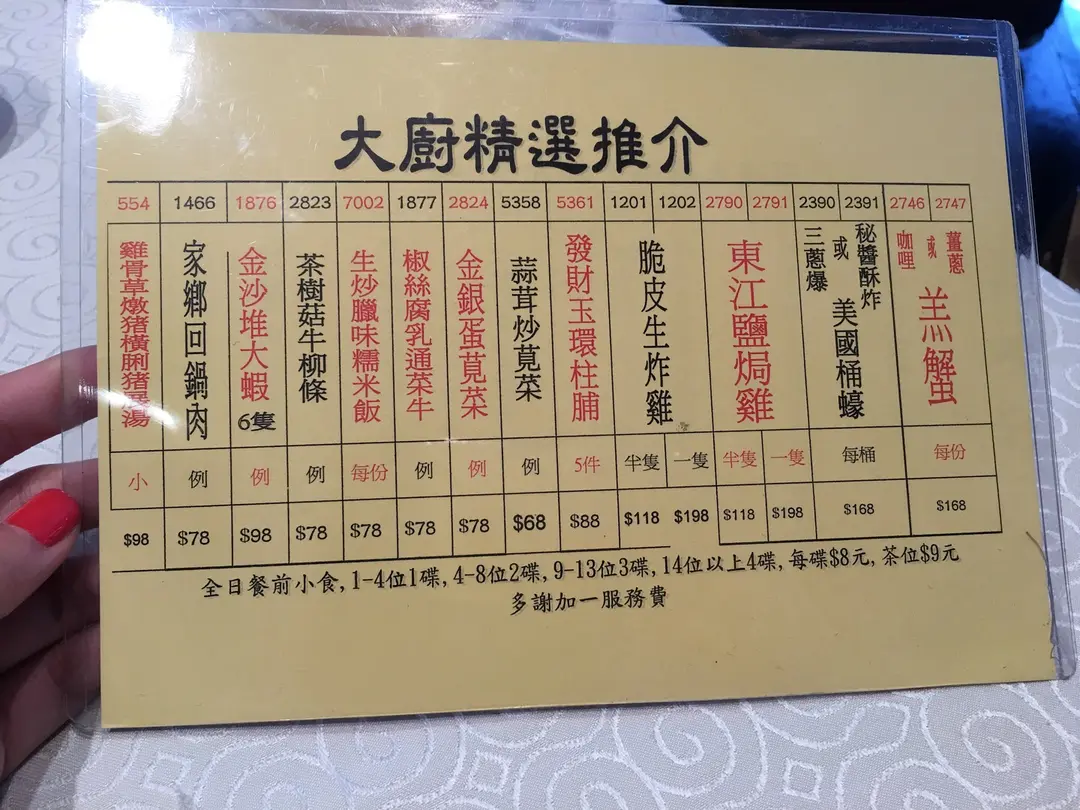 大廚精選推介
554 1466 1876 2823 7002 1877 2824 5358 5361 1201 1202 2790 2791 2390 2391 2746 2747
雞骨草燉猪橫脷猪湯
家鄉回鍋肉
金沙堆大蝦
6隻
茶樹菇牛柳條
生炒臘味糯米飯
椒絲腐乳通菜牛
金銀蛋莧菜
蒜茸炒莧菜
發財玉環柱脯
脆皮生炸雞
東江鹽焗雞
三蔥爆
或
秘醬酥炸
美國桶蠔
咖哩
或
薑蔥
羔蟹
小 例 例 例 每份 例 例 例 5件 半隻 一隻 半隻 一隻 每桶 每份
$98 $78 $98 $78 $78 $78 $78 $68 $88 $118 $198 $118 $198 $168 $168
全日餐前小食, 1-4位1碟, 4-8位2碟, 9-13位3碟, 14位以上4碟, 每碟$8元, 茶位$9元
多謝加一服務費